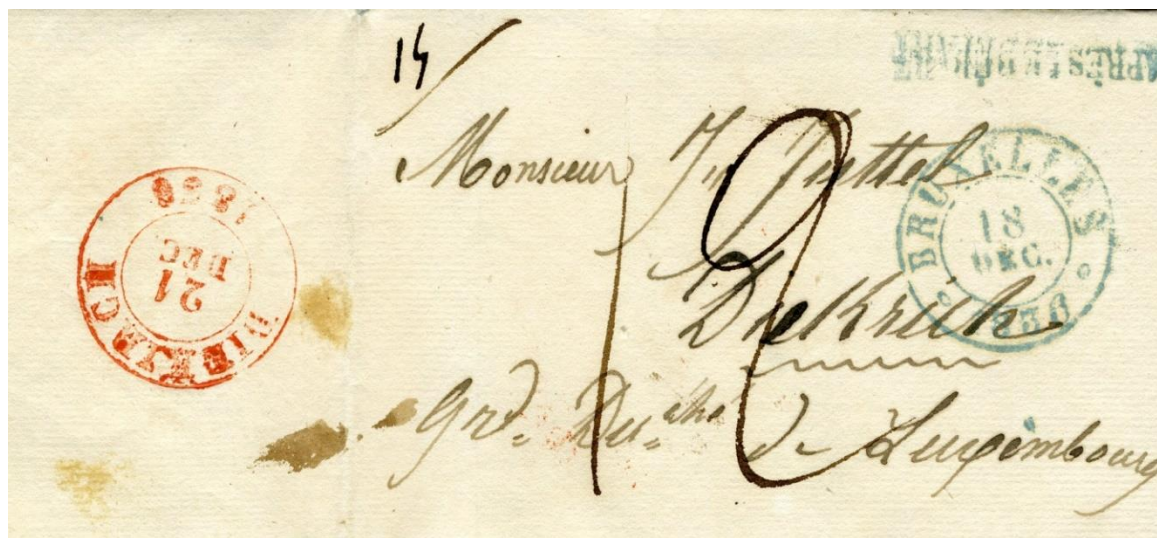 APRÈS LE DÉPART
Monsieur
BRUXELLES
18
DEC.
1836
Diekrich
Grd. Duché de Luxembourg
DIEKIRCH
21
DEC.